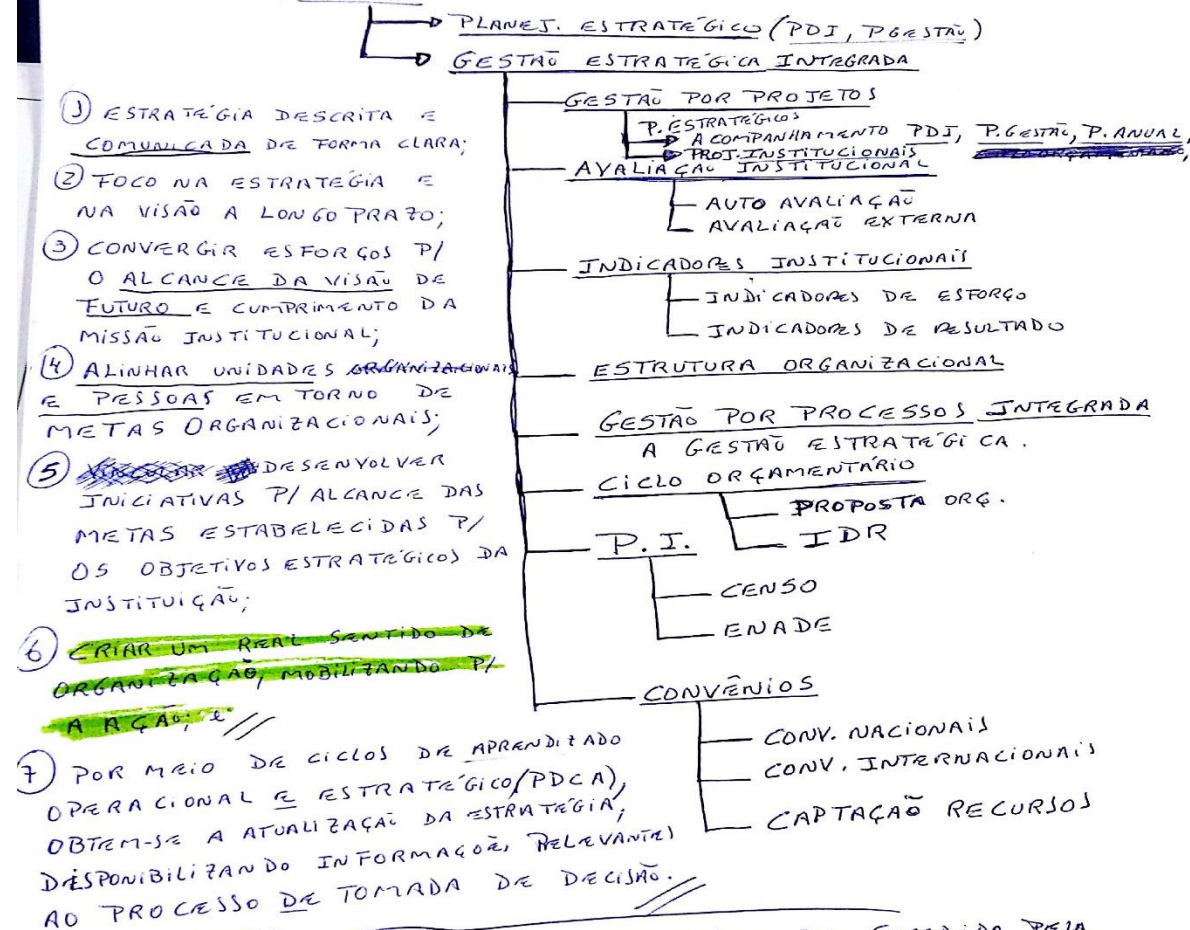 PLANEJ. ESTRATÉGICO (PDI, PGESTÃO)
GESTÃO ESTRATÉGICA INTEGRADA
① ESTRATÉGIA DESCRITA E
COMUNICADA DE FORMA CLARA;
② FOCO NA ESTRATÉGIA E
NA VISÃO A LONGO PRAZO;
③ CONVERGIR ESFORÇOS P/
O ALCANCE DA VISÃO DE
FUTURO E CUMPRIMENTO DA
MISSÃO INSTITUCIONAL;
④ ALINHAR UNIDADES ORGANIZACIONAIS
E PESSOAS EM TORNO DE
METAS ORGANIZACIONAIS;
⑤ DESENVOLVER
INICIATIVAS P/ ALCANCE DAS
METAS ESTABELECIDAS P/
OS OBJETIVOS ESTRATÉGICOS DA
INSTITUIÇÃO;
⑥ CRIAR UM REAL SENTIDO DE
ORGANIZAÇÃO, MOBILIZANDO P/
A AÇÃO; e
⑦ POR MEIO DE CICLOS DE APRENDIZADO
OPERACIONAL E ESTRATÉGICO (PDCA),
OBTEM-SE A ATUALIZAÇÃO DA ESTRATÉGIA,
DISPONIBILIZANDO INFORMAÇÕES RELEVANTES
AO PROCESSO DE TOMADA DE DECISÃO.
GESTÃO POR PROJETOS
P. ESTRATÉGICOS
ACOMPANHAMENTO PDI, P.GESTÃO, P. ANUAL,
PROJ. INSTITUCIONAIS
AVALIAÇÃO INSTITUCIONAL
AUTO AVALIAÇÃO
AVALIAÇÃO EXTERNA
INDICADORES INSTITUCIONAIS
INDICADORES DE ESFORÇO
INDICADORES DE RESULTADO
ESTRUTURA ORGANIZACIONAL
GESTÃO POR PROCESSOS INTEGRADA
A GESTÃO ESTRATÉGICA.
CICLO ORÇAMENTÁRIO
PROPOSTA ORÇ.
IDR
P. I.
CENSO
ENADE
CONVÊNIOS
CONV. NACIONAIS
CONV. INTERNACIONAIS
CAPTAÇÃO RECURSOS
PELA